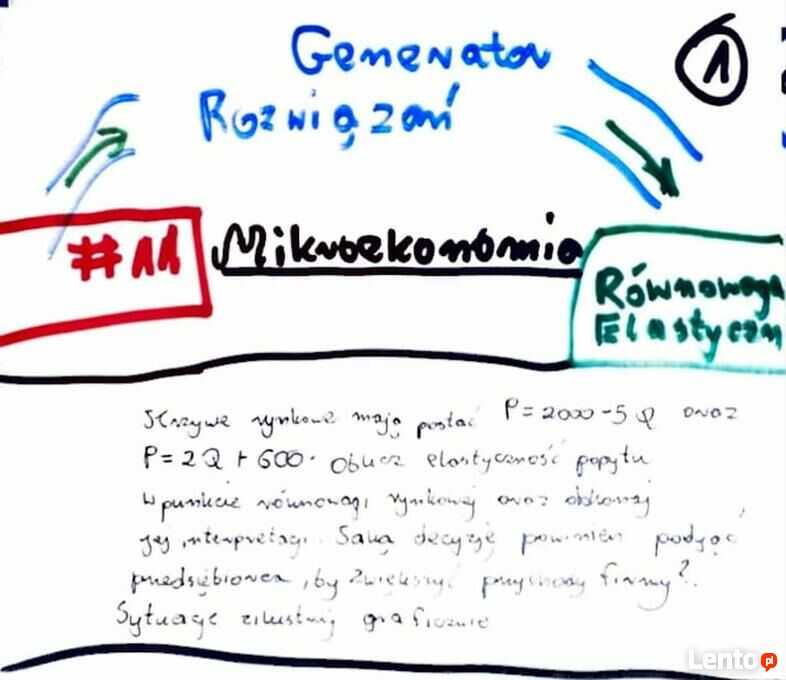 Generator
Rozwiązań
1
#11
Mikroekonomia
Równowaga
Elastyczn
Krzywe rynkowe mają postać P=2000-5Q oraz
P=2Q+600. Oblicz elastyczność popytu
w punkcie równowagi rynkowej oraz dokonaj
jej interpretacji. Jaką decyzję powinien podjąć
przedsiębiorca, by zwiększyć przychody firmy?
Sytuację zilustruj graficznie
Lento.pl